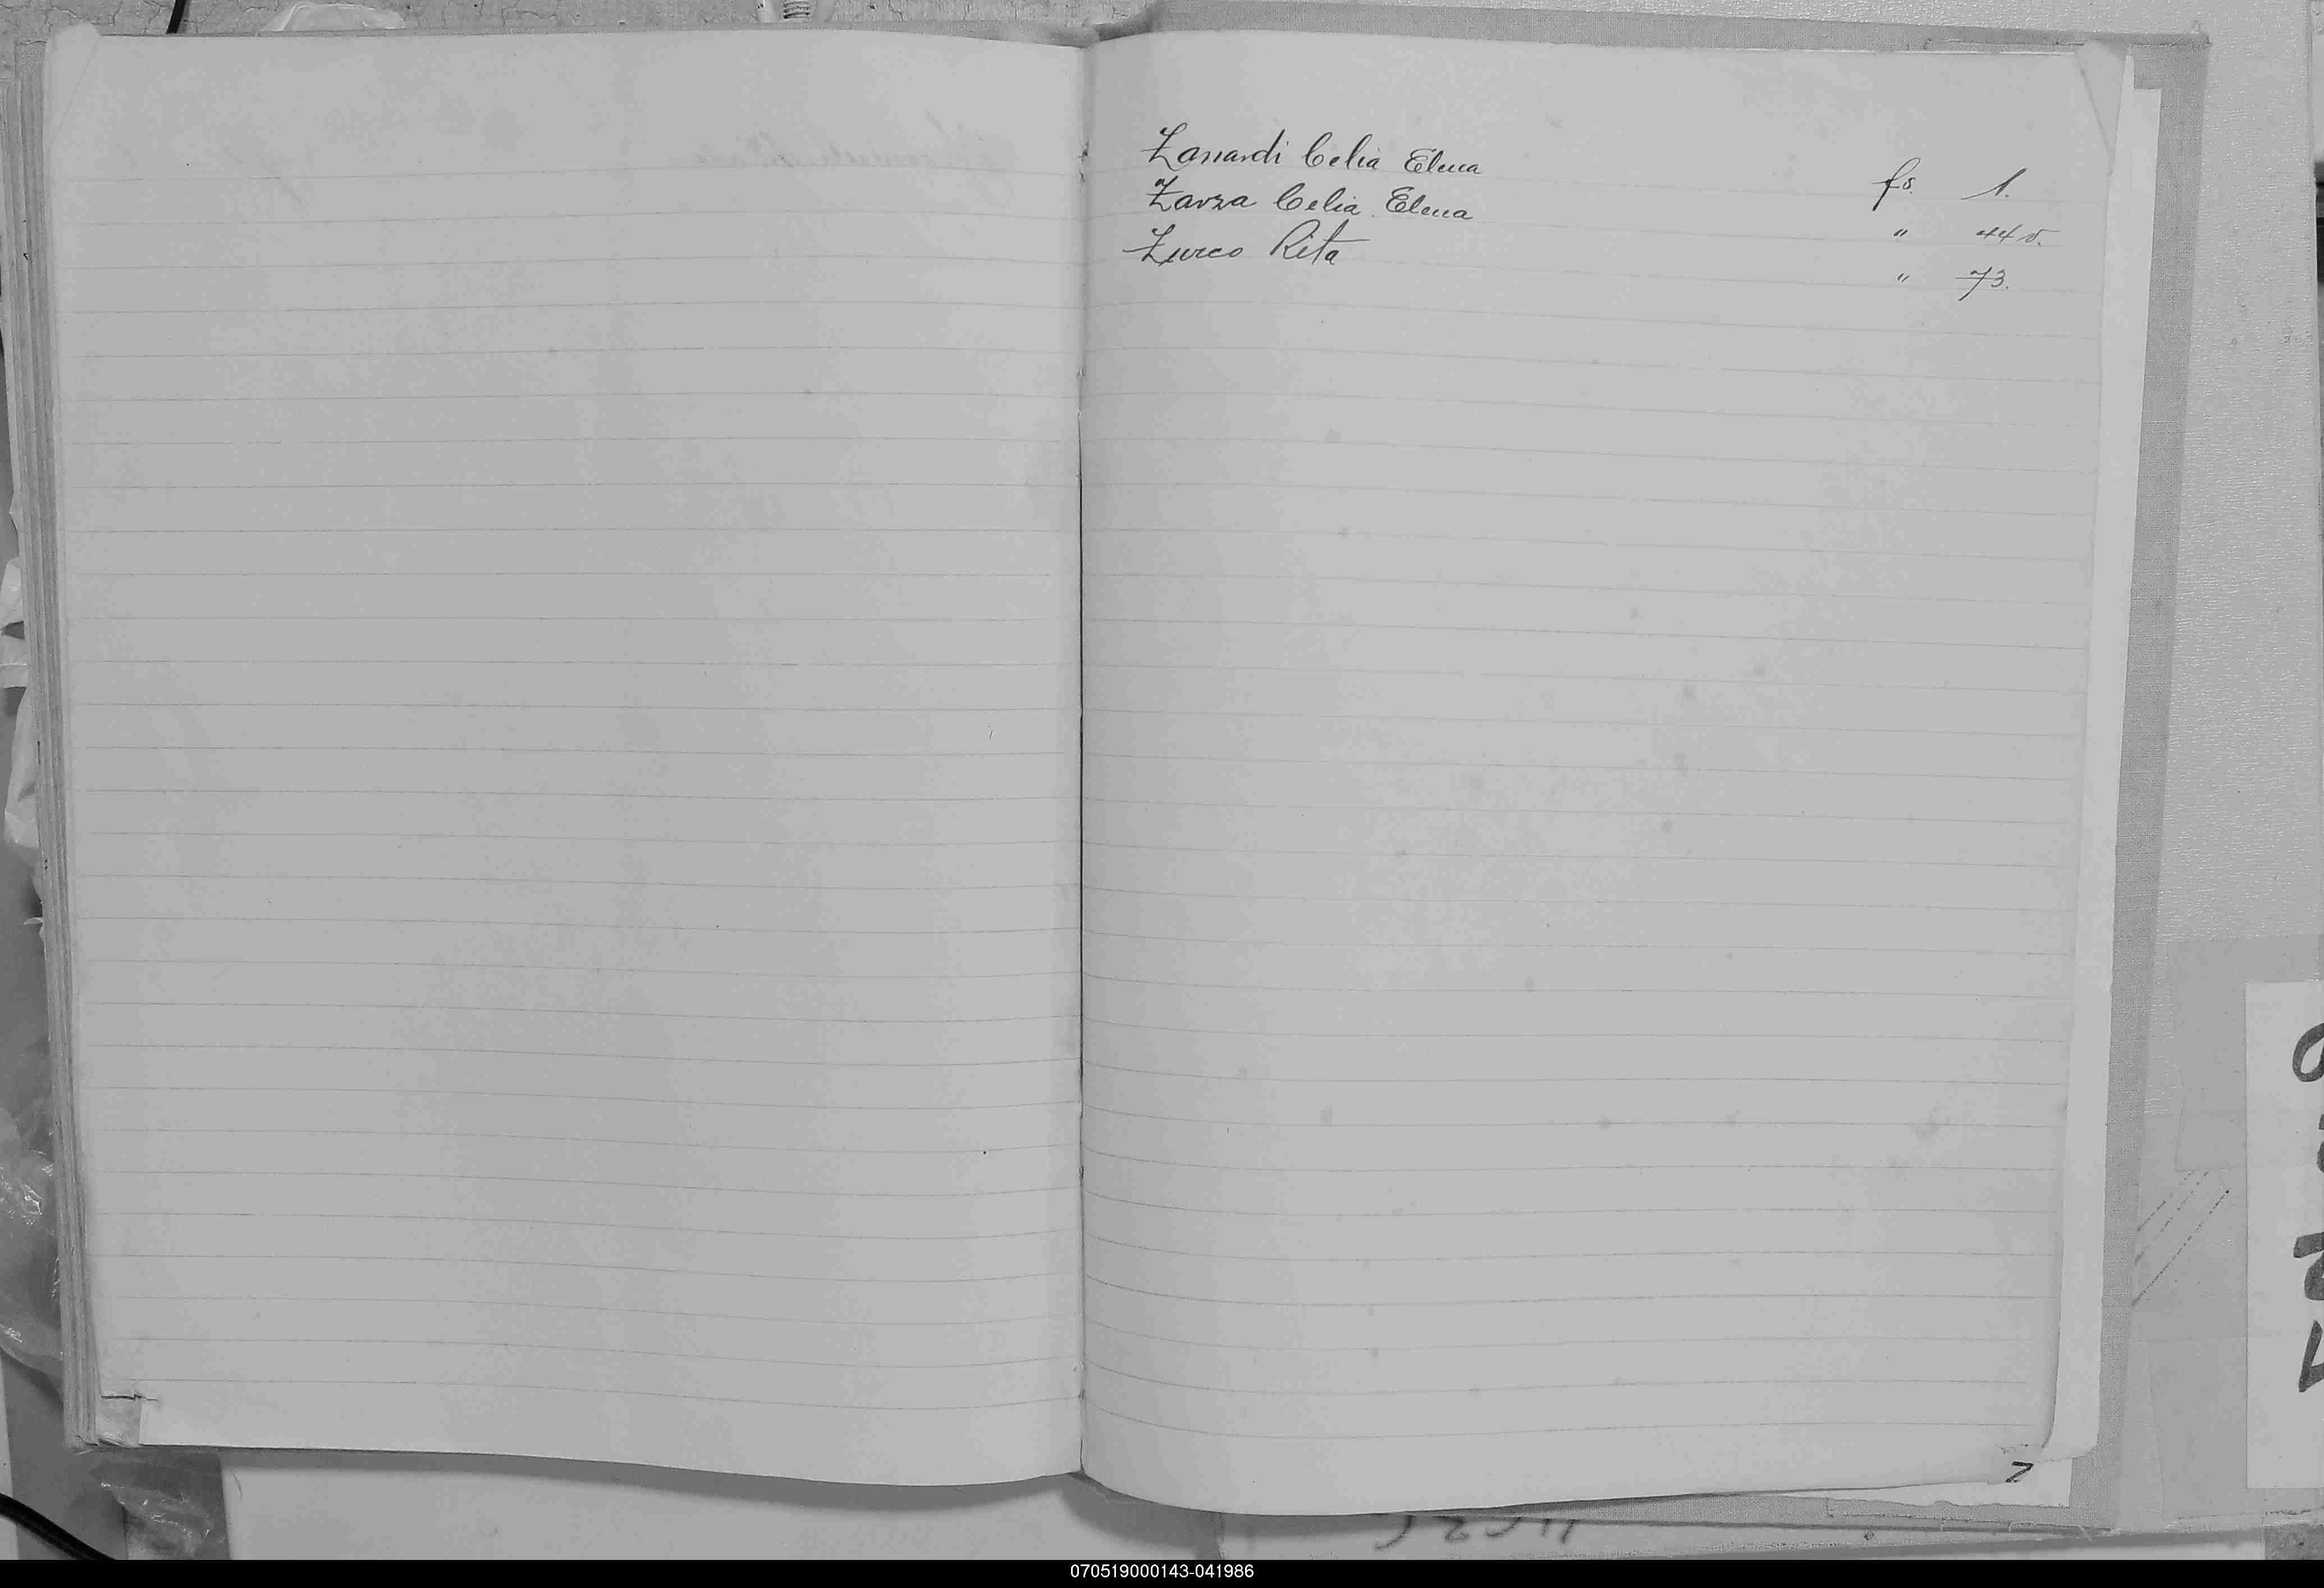 Zanardi Celia Elena fs. 1.
Zarza Celia Elena " 44 v.
Zurco Rita " 73.
Z
070519000143-041986